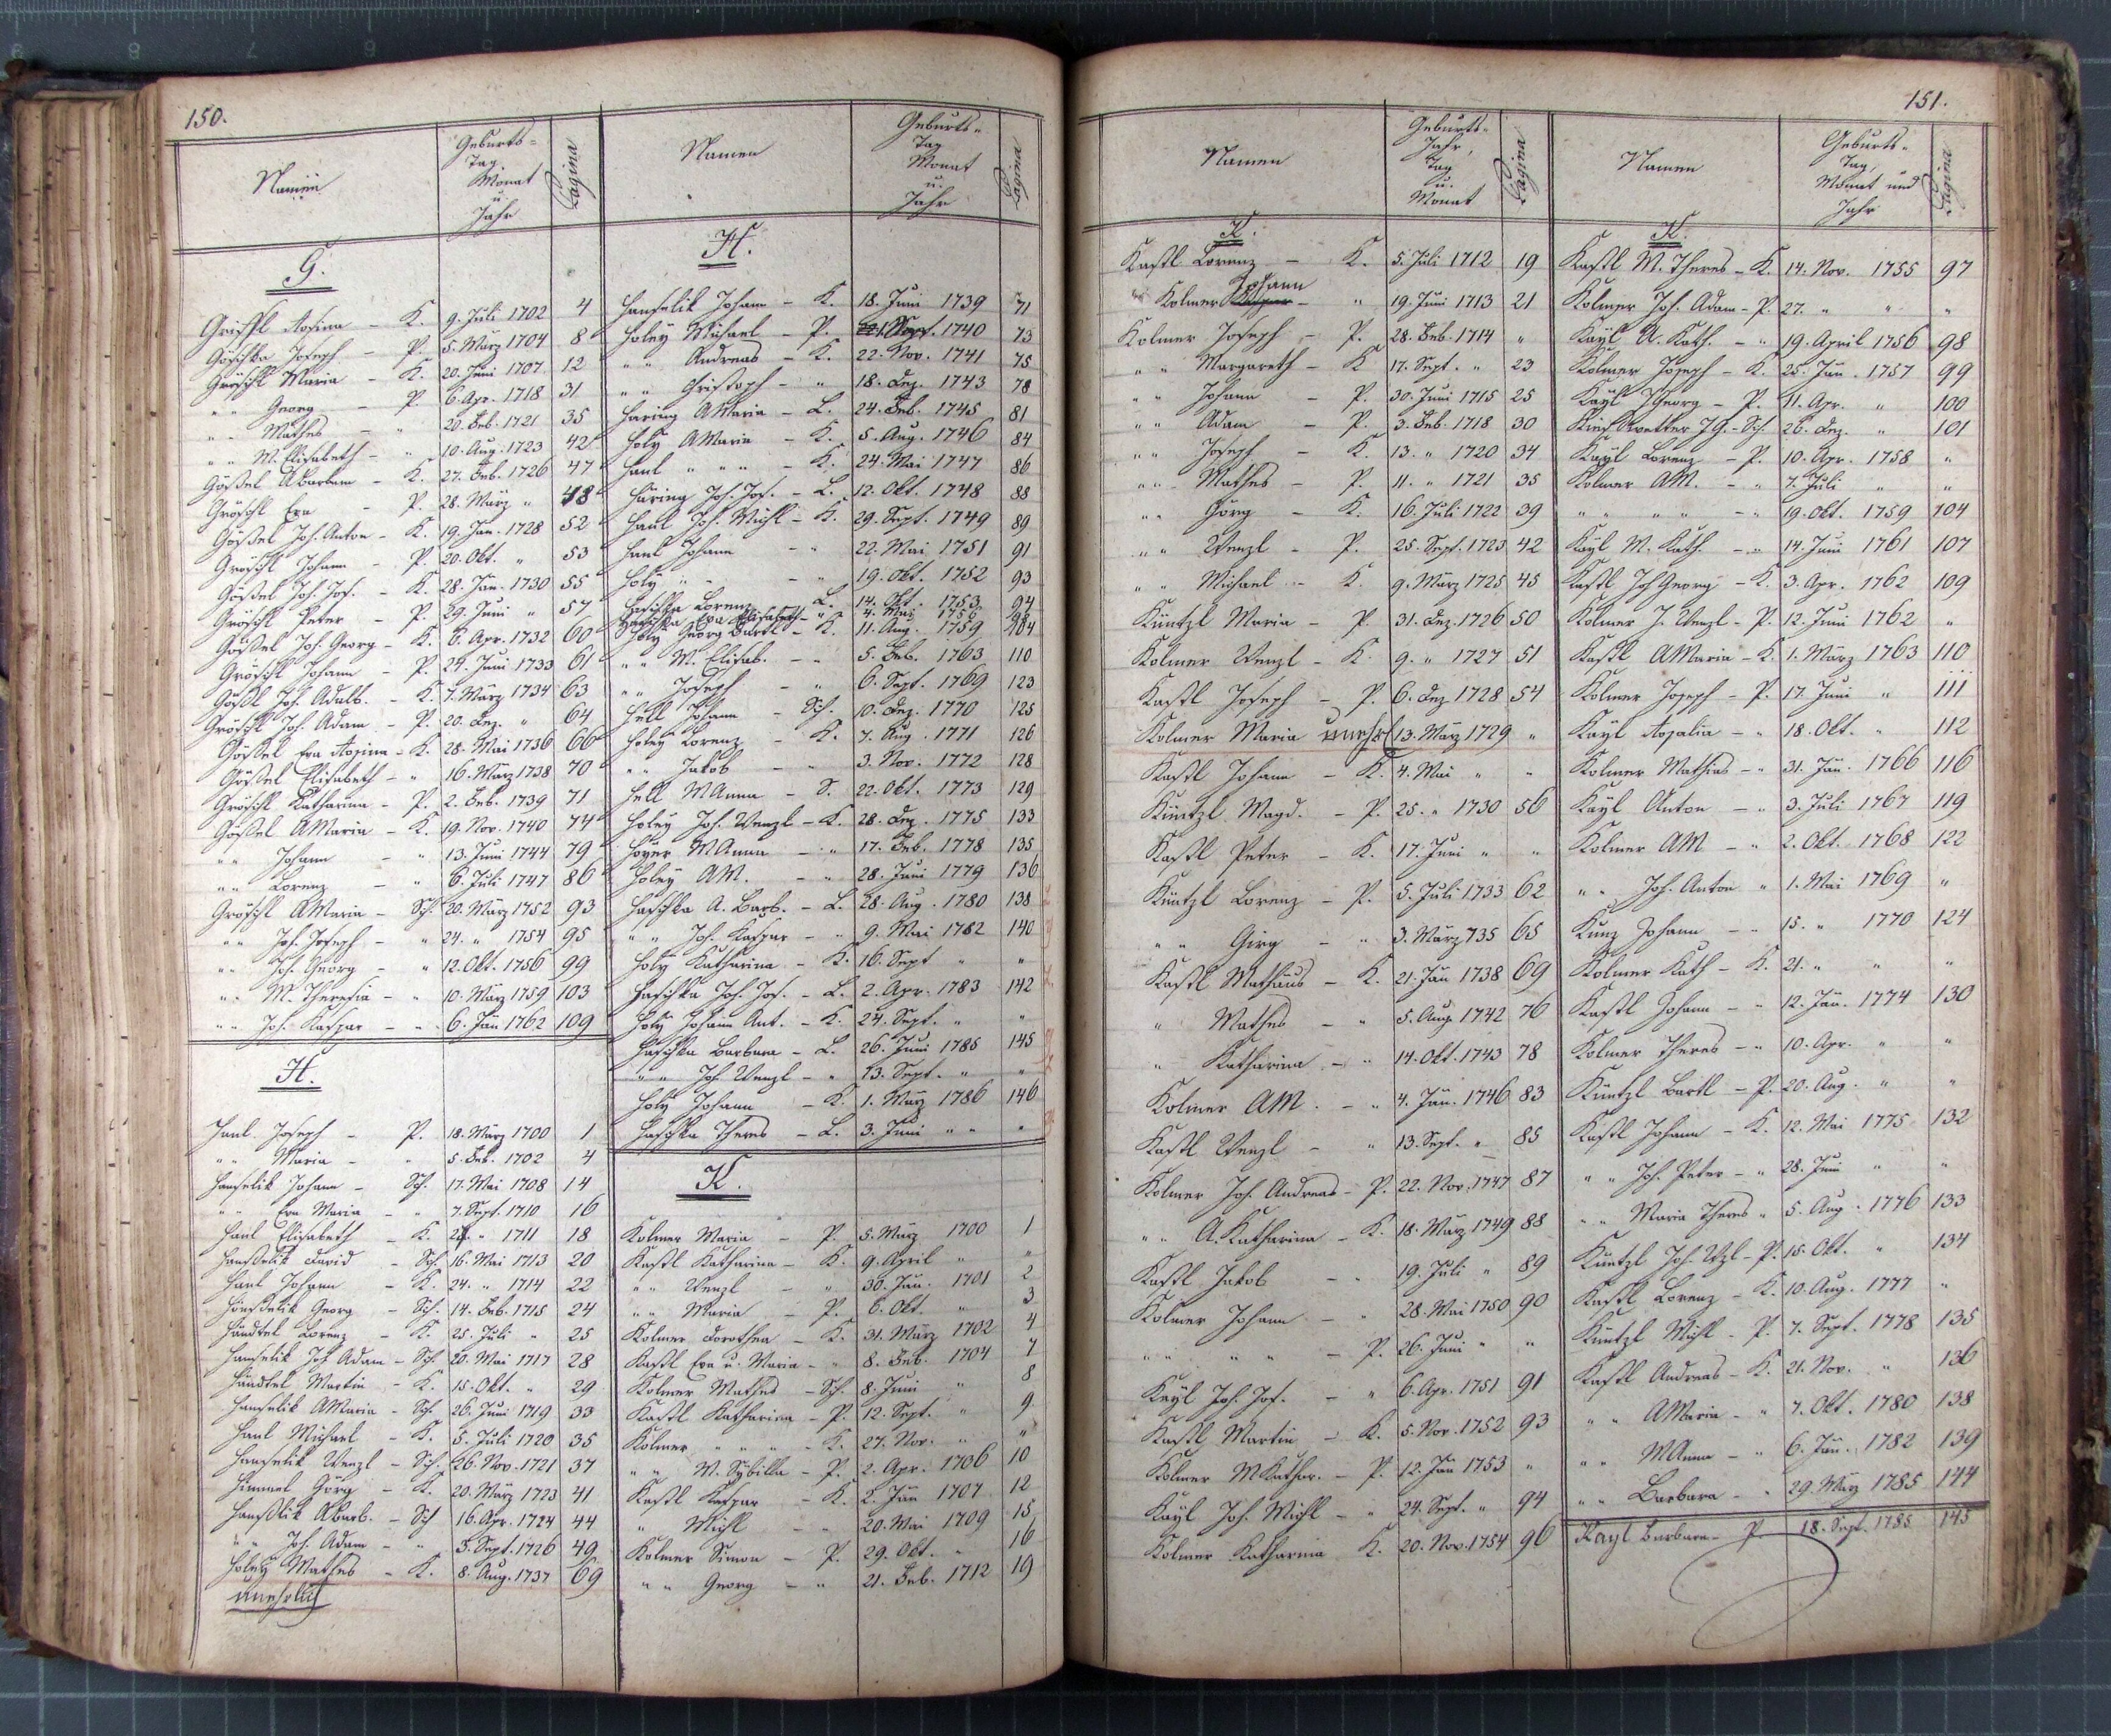 150.
Namen
Geburts=
Tag
Monat
u.
Jahr
Pagina
G.
Rosina - K. 9. Juli 1702 4
Göschka Joseph - P. 5. März 1704 8
Gröschl Maria - K. 20. Juni 1707 12
" " Georg - P. 6. Apr. 1718 31
" " Mathes - " 20. Feb. 1721 35
" " M. Elisabeth - " 10. Aug. 1723 42
Gößel ABarbara - K. 27. Feb. 1726 47
Gröschl Eva - P. 28. März " 48
Gößel Joh. Anton - K. 19. Jan. 1728 52
Gröschl Johann - P. 20. Okt. " 53
Gößel Joh. Jos. - K. 28. Jän. 1730 55
Gröschl Peter - P. 29. Juni " 57
Gößel Joh. Georg - K. 6. Apr. 1732 60
Gröschl Johann - P. 24. Juni 1733 61
Gößl Joh. Adalb. - K. 7. März 1734 63
Gröschl Joh. Adam - P. 20. Dez. " 64
Gößel Eva Rosina - K. 28. Mai 1736 66
Gößel Elisabeth - " 16. März 1738 70
Gröschl Katharina - P. 2. Feb. 1739 71
Gößel AMaria - K. 19. Nov. 1740 74
" " Johann - " 13. Juni 1744 79
" " Lorenz - " 6. Juli 1747 86
Gröschl AMaria - Sch. 20. März 1752 93
" " Joh. Joseph - " 24. " 1754 95
" " Joh. Georg - " 12. Okt. 1756 99
" " M. Theresia - " 10. März 1759 103
" " Joh. Kaspar - " 6. Jän 1762 109
H.
Hanl Joseph - P. 18. März 1700 1
" " Maria - " 5. Feb. 1702 4
Hanselik Johann - Sch. 17. Mai 1708 14
" " Eva Maria - " 7. Sept. 1710 16
Hanl Elisabeth - K. " 1711 18
Hanselik David - Sch. 16. Mai 1713 20
Hanl Johann - K. 24. " 1714 22
Hanselik Georg - Sch. 14. Feb. 1715 24
Händtel Lorenz - K. 25. Juli " 25
Hanselik Joh Adam - Sch. 20. Mai 1717 28
Händtel Martin - K. 15. Okt. " 29
Hanselik AMaria - Sch. 26. Juni 1719 33
Hanl Michael - K. 5. Juli 1720 35
Hanselik Wenzl - Sch. 26. Nov. 1721 37
Himmel Görg - K. 20. März 1723 41
Hanslik ABarb. - Sch 16. Apr. 1724 44
" " Joh. Adam - " 5. Sept. 1726 49
Holey Mathes - K. 8. Aug. 1737 69
unehelich
Namen
Geburts=
Tag
Monat
u.
Jahr
Pagina
H.
Hanselik Johann - K. 18. Juni 1739 71
Holey Michael - P. 1740 73
" " Andreas - K. 22. Nov. 1741 75
" " Christoph - " 18. Dez. 1743 78
Haring AMaria - L. 24. Feb. 1745 81
Holy AMaria - K. 5. Aug. 1746 84
Hanl " " " - K. 24. Mai 1747 86
Häring Joh. Jos. - L. 12. Okt. 1748 88
Hanl Joh. Michl - K. 29. Sept. 1749 89
Hanl Johann - " 22. Mai 1751 91
Holy " " - " 19. Okt. 1752 93
Haschka Lorenz - L. 14. Okt. 1753 94
Haschka Eva Elisabeth - " 4. Mai
Holy Georg Bartl - K. 11. Aug. 1759 104
" " M. Elisab. - " 5. Feb. 1763 110
" " Joseph - " 6. Sept. 1769 123
Hell Johann - Sch. 10. Dez. 1770 125
Holey Lorenz - K. 7. Aug. 1771 126
" " Jakob - " 3. Nov. 1772 128
Hell MAnna - S. 22. Okt. 1773 129
Holey Joh. Wenzl - K. 28. Dez. 1775 133
Hoyer MAnna - " 17. Feb. 1778 135
Holey AM. - " 28. Juni 1779 136
Haschka A. Barb. - L. 28. Aug. 1780 138
" " Joh. Kaspar - " 9. Mai 1782 140
Holy Katharina - K. 16. Sept " "
Haschka Joh. Jos. - L. 2. Apr. 1783 142
Holy Johann Ant. - K. 24. Sept. " "
Haschka Barbara - L. 26. Juni 1785 145
" " Joh. Wenzl - " 13. Sept. " "
Holy Johann - K. 1. März 1786 146
Haschka Theres - L. 3. Juni " " "
K.
Kolmer Maria - P. 5. März 1700 1
Kastl Katharina - K. 9. April " "
" " Wenzl - " 30. Jän. 1701 2
" " Maria - P. 6. Okt. " 3
Kolmer Dorothea - K. 31. März 1702 4
Kastl Eva u. Maria - " 8. Feb. 1704 7
Kolmer Mathes - Sch. 8. Juni " 8
Kastl Katharina - P. 12. Sept. " 9
Kolmer " " " - K. 27. Nov. " "
" " M. Sybilla - P. 2. Apr. 1706 10
Kastl Kaspar - K. 2. Jän 1707 12
" Michl - " 20. Mai 1709 15
Kolmer Simon - P. 29. Okt. " 16
" " Georg - " 21. Feb. 1712 19
151.
Namen
Geburts=
Jahr,
Tag
u.
Monat
Pagina
K.
Kastl Lorenz - K. 5. Juli 1712 19
Johann
Kolmer - " 19. Juni 1713 21
Kolmer Joseph - P. 28. Feb. 1714 "
" " Margareth - K 17. Sept. " 23
" " Johann - P. 30. Juni 1715 25
" " Adam - P. 3. Feb. 1718 30
" " Joseph - K. 13. " 1720 34
" " Mathes - P. 11. " 1721 35
" " Görg - K. 16. Juli 1722 39
" " Wenzl - P. 25. Sept. 1723 42
" " Michael - K. 9. März 1725 45
Küntzl Maria - P. 31. Dez. 1726 50
Kolmer Wenzl - K. 9. " 1727 51
Kastl Joseph - P. 6. Dez 1728 54
Kolmer Maria unehel 13. März 1729 "
Kastl Johann - K. 4. Mai " "
Küntzl Magd. - P. 25. " 1730 56
Kastl Peter - K. 17. Juni " "
Küntzl Lorenz - P. 5. Juli 1733 62
" " Girg - " 3. März 735 65
Kastl Mathäus - K. 21. Jän 1738 69
" Mathes - " 5. Aug. 1742 76
" Katharina - " 14. Okt. 1743 78
Kolmer AM. - " 4. Jän. 1746 83
Kastl Wenzl - " 13. Sept. " 85
Kolmer Joh. Andreas - P. 22. Nov. 1747 87
" " A. Katharina - K. 18. März 1749 88
Kastl Jakob - " 19. Juli " 89
Kolmer Johann - " 28. Mai 1750 90
" " " " - P. 26. Juni " "
Kayl Joh. Jos. - " 6. Apr. 1751 91
Kastl Martin - K. 5. Nov. 1752 93
Kolmer MKathar. - P. 12. Jän 1753 "
Kayl Joh. Michl - " 24. Sept. " 94
Kolmer Katharina K. 20. Nov. 1754 96
Namen
Geburts=
Tag,
Monat und
Jahr
Pagina
K.
Kastl M. Theres - K. 14. Nov. 1755 97
Kolmer Joh. Adam - P. 27. " " "
Kayl A. Kath. - " 19. April 1756 98
Kolmer Joseph - K. 25. Jän. 1757 99
Kayl JGeorg - P. 11. Apr. " 100
J G. - Sch. 26. Dez. " 101
Kayl Lorenz - P. 10. Apr. 1758 "
Kolmer AM. - " 7. Juli " "
" " " " - " 19. Okt. 1759 104
Kayl M. Kath. - " 14. Juni 1761 107
Kastl JohGeorg - K. 3. Apr. 1762 109
Kolmer J. Wenzl - P. 12. Juni 1762 "
Kastl AMaria - K. 1. März 1763 110
Kolmer Joseph - P. 17. Juni " 111
Kayl Rosalia - " 18. Okt. " 112
Kolmer Mathias - " 31. Jän. 1766 116
Kayl Anton - " 3. Juli 1767 119
Kolmer AM - " 2. Okt. 1768 122
" " Joh. Anton " 1. Mai 1769 "
Kunz Johann - " 15. " 1770 124
Kolmer Kath - K. 21. " " "
Kastl Johann - " 12. Jän. 1774 130
Kolmer Theres - " 10. Apr. " "
Küntzl Bartl - P. 20. Aug. " "
Kastl Johann - K. 12. Mai 1775 132
" " Joh. Peter - " 28. Juni " "
" " Maria Theres " 5. Aug. 1776 133
Küntzl Joh. Wzl - P. 15. Okt. " 134
Kastl Lorenz - K. 10. Aug. 1777 "
Küntzl Michl - P. 7. Sept. 1778 135
Kastl Andreas - K. 21. Nov. " 136
" " AMaria - " 7. Okt. 1780 138
" " MAnna - " 6. Jän. 1782 139
" " Barbara - " 29. März 1785 144
Kayl Barbara - P 18. Sept. 1785 145